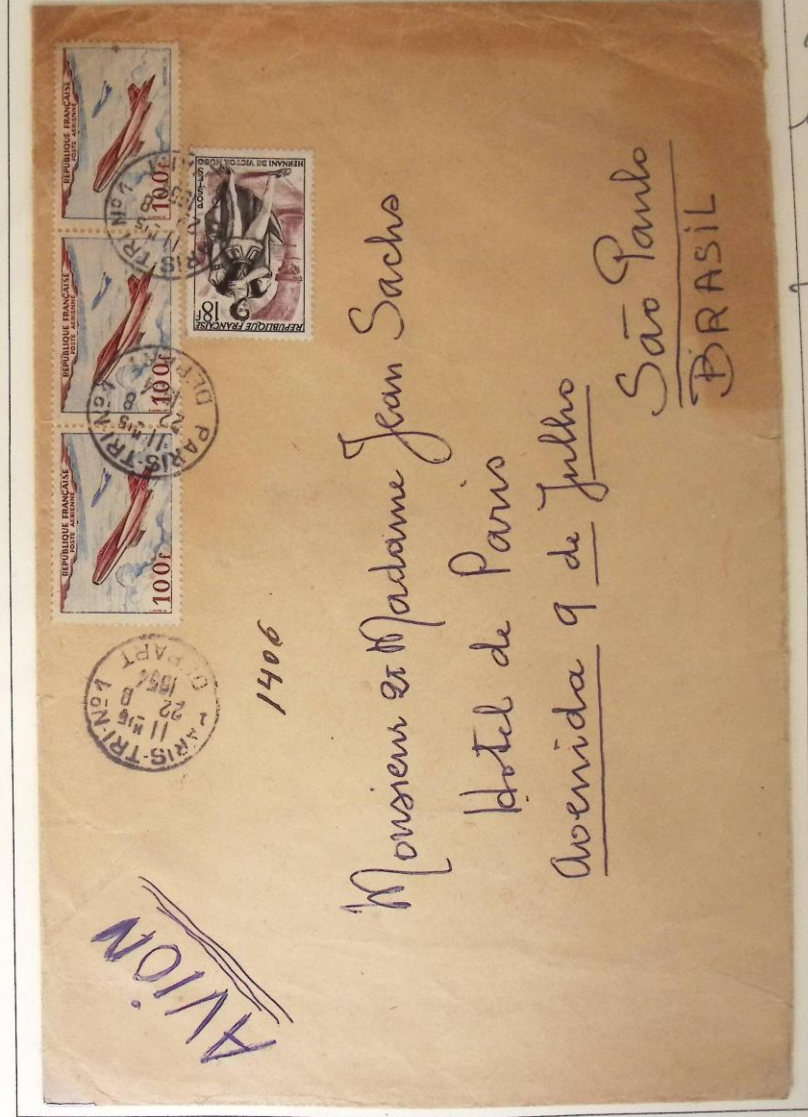 AVION
PARIS-TRI-Nº1
11 H15
22
8
1954
DEPART
REPUBLIQUE FRANÇAISE
POSTE AERIENNE
100f
REPUBLIQUE FRANÇAISE
POSTE AERIENNE
100f
REPUBLIQUE FRANÇAISE
POSTE AERIENNE
100f
PARIS-TRI-Nº1
11 H15
8
DEPART
PARIS-TRI-Nº1
8
REPUBLIQUE FRANÇAISE
18f
HERNANI DE VICTOR HUGO
1406
Monsieur et Madame Jean Sachs
Hotel de Paris
Avenida 9 de Julho
São Paulo
BRASIL